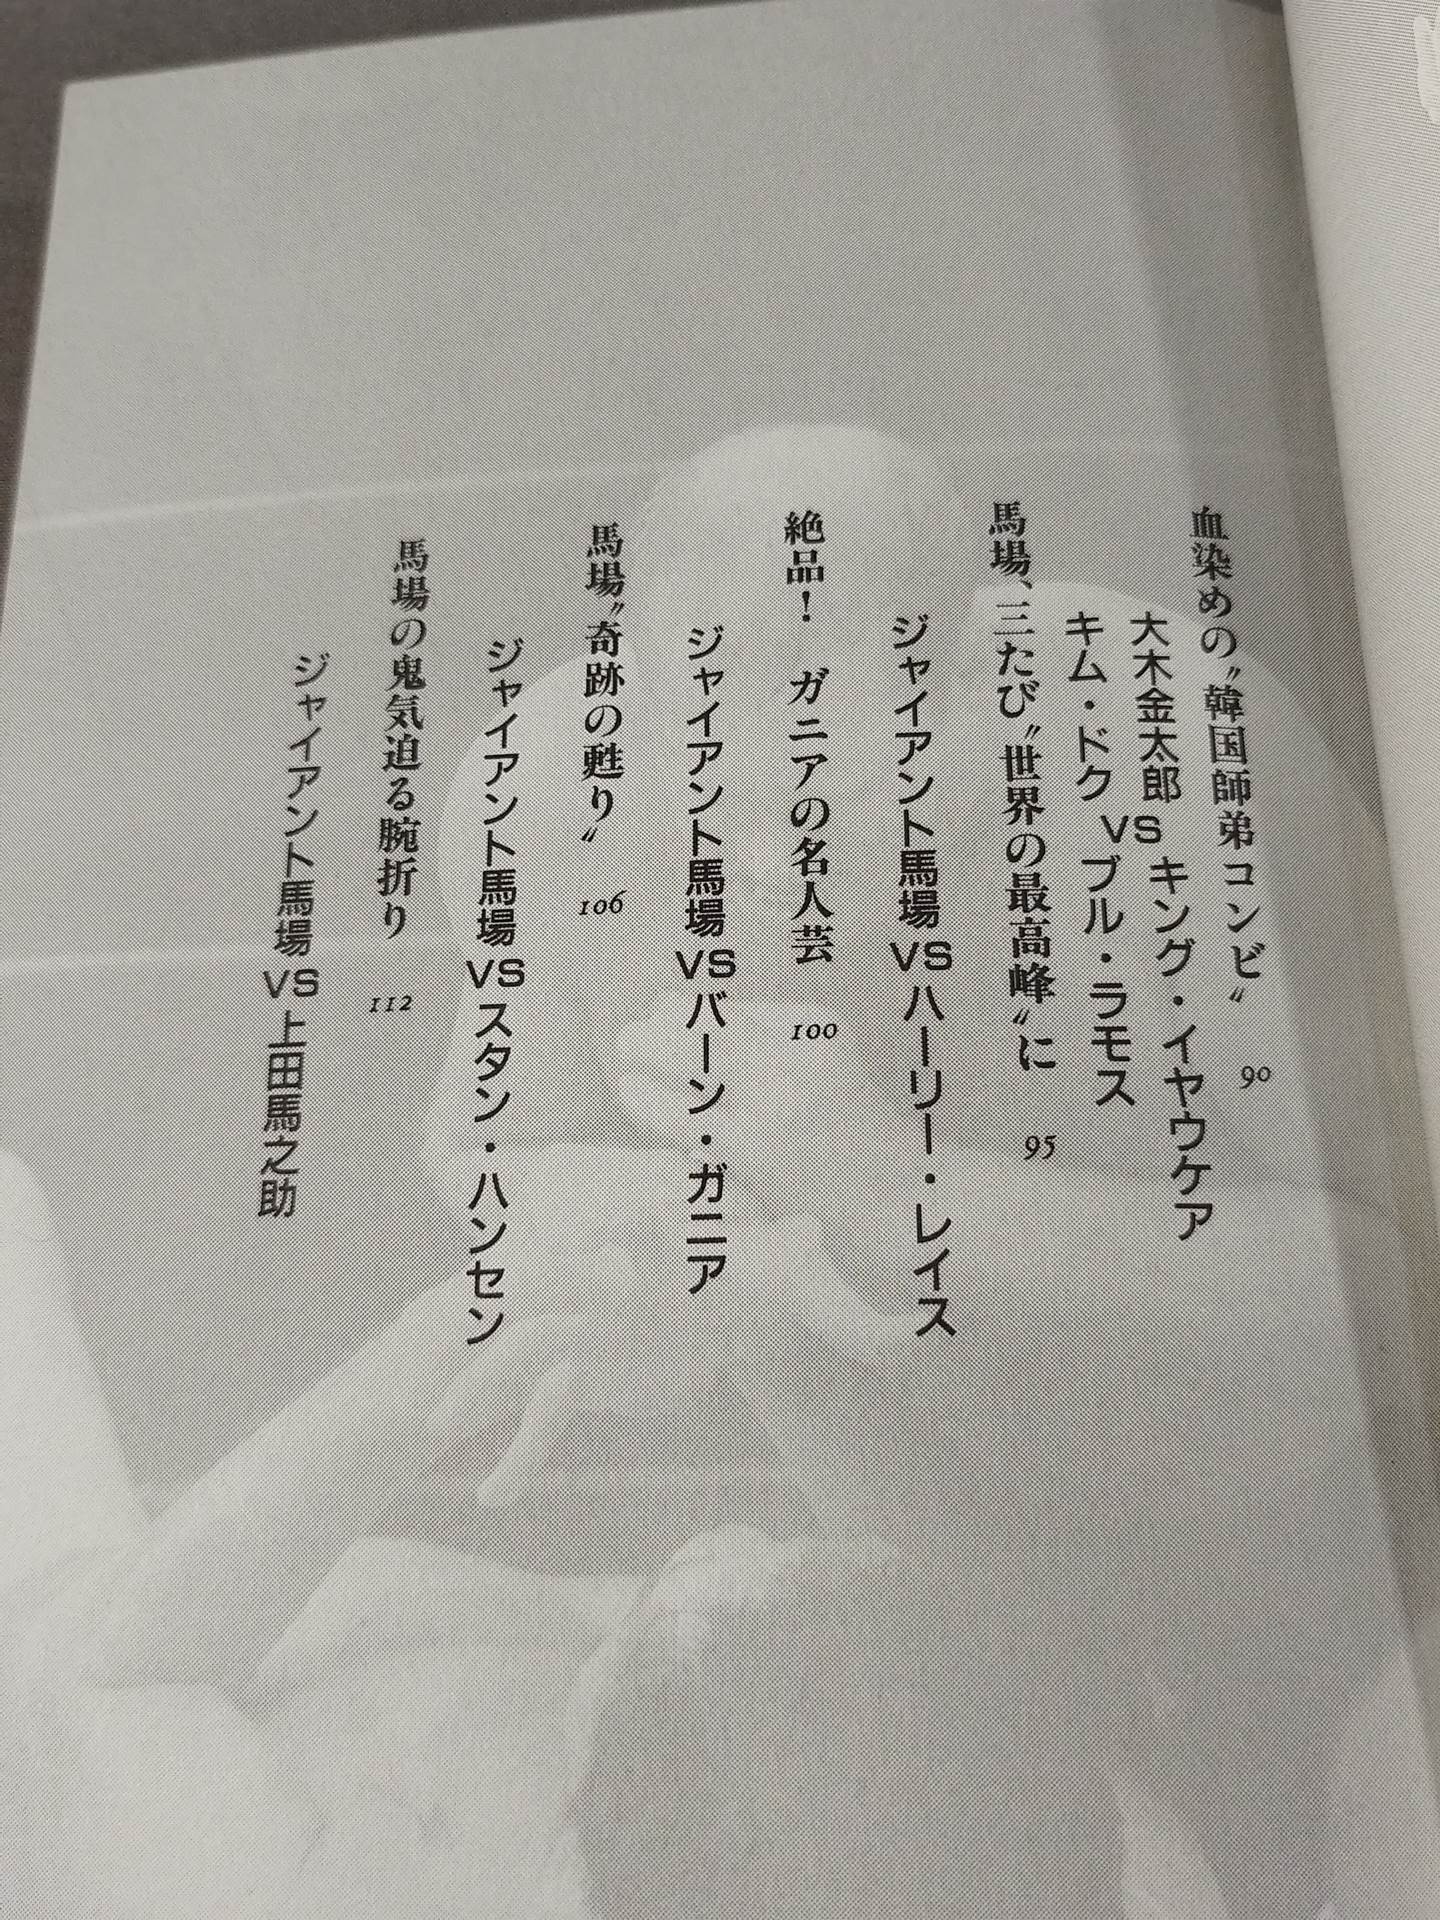 血染めの〝韓国師弟コンビ〟 90
大木金太郎 VS キング・イヤウケア
キム・ドク ブル・ラモス
馬場、三たび〝世界の最高峰〟に 95
ジャイアント馬場 VS ハーリー・レイス
絶品！ ガニアの名人芸 100
ジャイアント馬場 VS バーン・ガニア
馬場〝奇跡の甦り〟 106
ジャイアント馬場 VS スタン・ハンセン
馬場の鬼気迫る腕折り 112
ジャイアント馬場 VS 上田馬之助